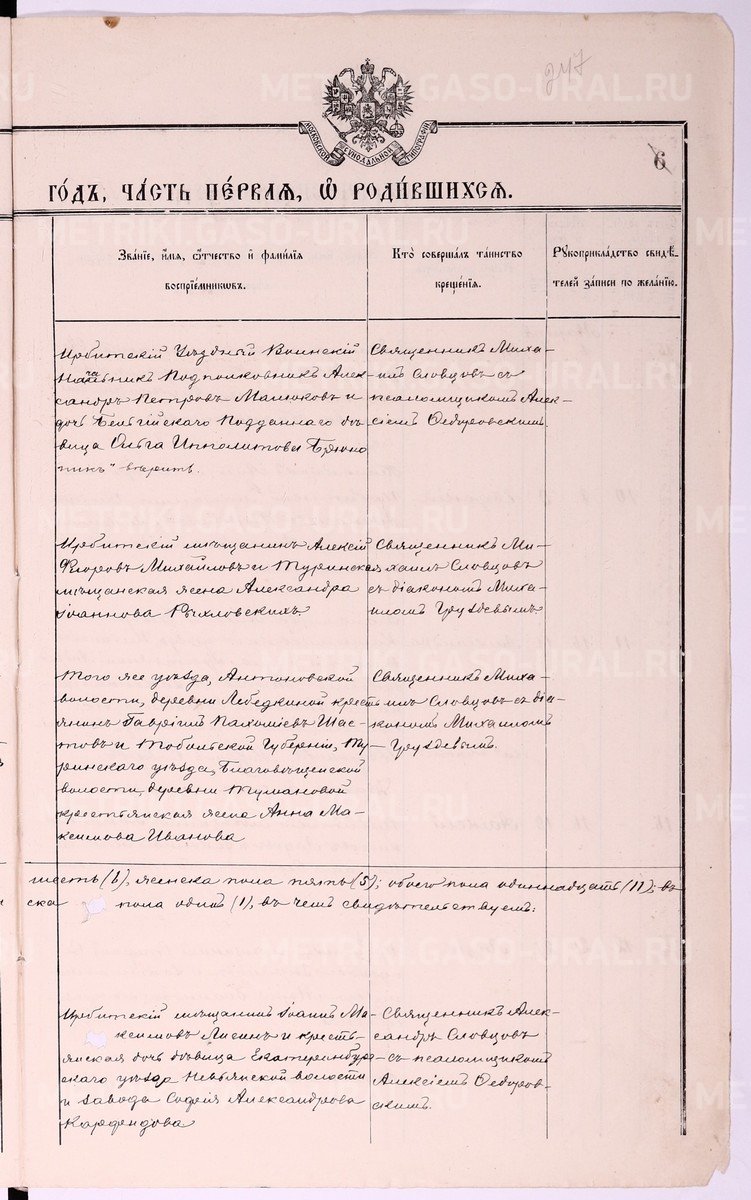 247
МОСКОВСКОЙ СѴНОДАЛЬНОЙ ТИПОГРАФІИ
6
ГОДЪ, ЧАСТЬ ПЕРВАЯ, Ѡ РОДИВШИХСЯ.
Званіе, имя, отчество и фамилія
воспріемниковъ.
Кто совершалъ таинство
крещенія.
Рукоприкладство свидѣ-
телей записи по желанію.
Ирбитскій Уѣздный Воинскій
Начальникъ Подполковникъ Алек-
сандръ Петровъ Манюковъ и
дочь Бельгійскаго Подданнаго дѣ-
вица Ольга Ипполитова
вѣрить.
Священникъ Миха-
илъ Словцовъ съ
псаломщикомъ Алек-
сіемъ Ѳедоровскимъ.
Ирбитскій мѣщанинъ Алексій
Егоровъ Михайловъ и Туринская
мѣщанская жена Александра
Іоаннова Рыхловскихъ.
Священникъ Ми-
хаилъ Словцовъ
съ діакономъ Миха-
иломъ Груздевымъ.
Того же уѣзда, Антоновской
волости, деревни Лебедкиной кресть-
янинъ Гавріилъ Пахоміевъ Шас-
товъ и Тобольской Губерніи, Ту-
ринскаго уѣзда, Благовѣщенской
волости, деревни Тумановой
крестьянская жена Анна Ма-
ксимова Иванова
Священникъ Миха-
илъ Словцовъ съ діа-
кономъ Михаиломъ
Груздевымъ.
шесть (6), женска пола пять (5); обоего пола одиннадцать (11); въ
ска пола одинъ (1), въ чемъ свидѣтельствуемъ:
Ирбитскій мѣщанинъ Іоаннъ Ма-
ксимовъ Лисинъ и кресть-
янская дочь дѣвица Екатеринбур-
скаго уѣзда Невьянской волости
и завода Софія Александрова
Карфидова
Священникъ Алек-
сандръ Словцовъ
съ псаломщикомъ
Алексіемъ Ѳедоров-
скимъ.
METRIKI.GASO-URAL.RU